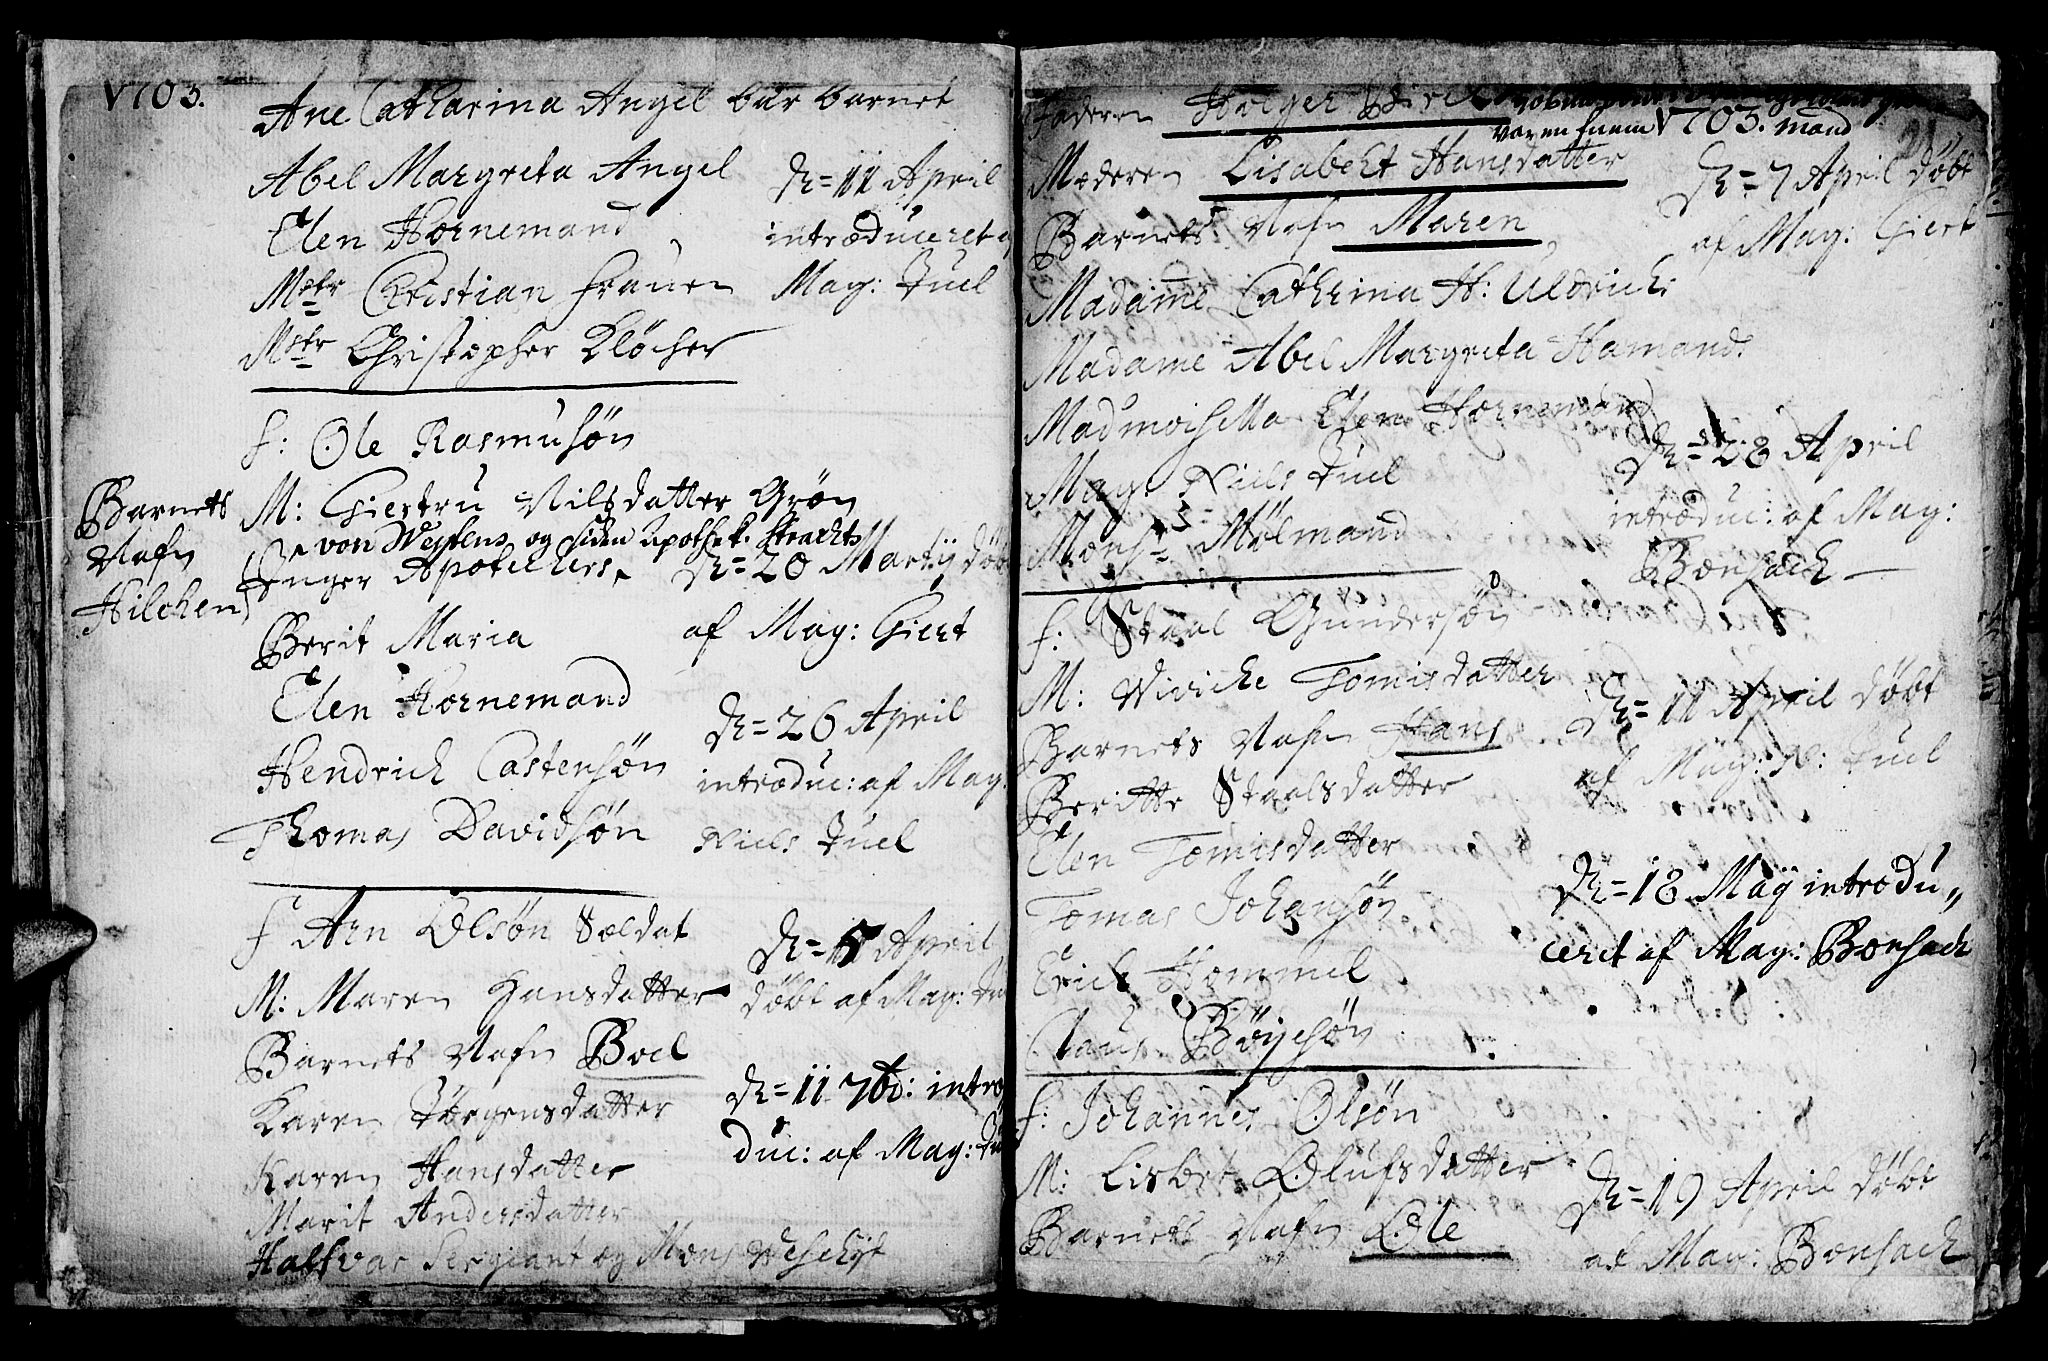 1703.
Ane Catharina Angel bar barnet
Abel Margreta Angel
Elen Hornemand
Mstr Christian Frauen
Mstr Christopher Kløcher
D: 11 April
introduceret
Mag: Juel
f: Ole Rasmusøn
M: Giertru Nilsdatter Grøn
Barnets
Nafn
Hilchen
von Westens og siden Apothek. Strachts
Inger Apotechers
Berit Maria
Elen Hornemand
Hendrich Castensøn
Thomas Davidsøn
D: 20 Martij døbt
af Mag: Giert
D: 26 April
introduc: af Mag.
Niels Juel
f Arn Olsøn Soldat
M: Maren Hansdatter
Barnets Nafn Boel
Karen Jörgensdatter
Karen Hansdatter
Marit Andersdatter
Halfvor Sergiant og Mons
D: 5 April
döbt af Mag:
D: 11 7br: intro
duc: af Mag:
Faderen Holger
var en fnem 1703. mand
Moderen Lisabeht Hansdatter
Barnets Nafn Maren
D: 7 April döbt
af Mag: Giert
Madame Cathrina H: Uldrichs
Madame Abel Margreta Hamands
Madmoisella Elen Hornemand
Mag. Niels Juel
Mons: Mölmand
D: 28 April
introduc: af Mag:
Bonsach
f: Staal Gundersøn
M: Wiviche Tomisdatter
Barnets Nafn Hans
Beritte Staalsdatter
Elen Tomisdatter
Tomas Johansøn
Erich Hommel
Claus Böyesøn
D: 11 April döbt
af Mag: N: Juel
D: 18 Maij introdu„
ceret af Mag: Bonsach
f: Johannes Olsøn
M: Lisbet Olufsdatter
Barnets Nafn Ole
D: 19 April döbt
af Mag: Bonsach